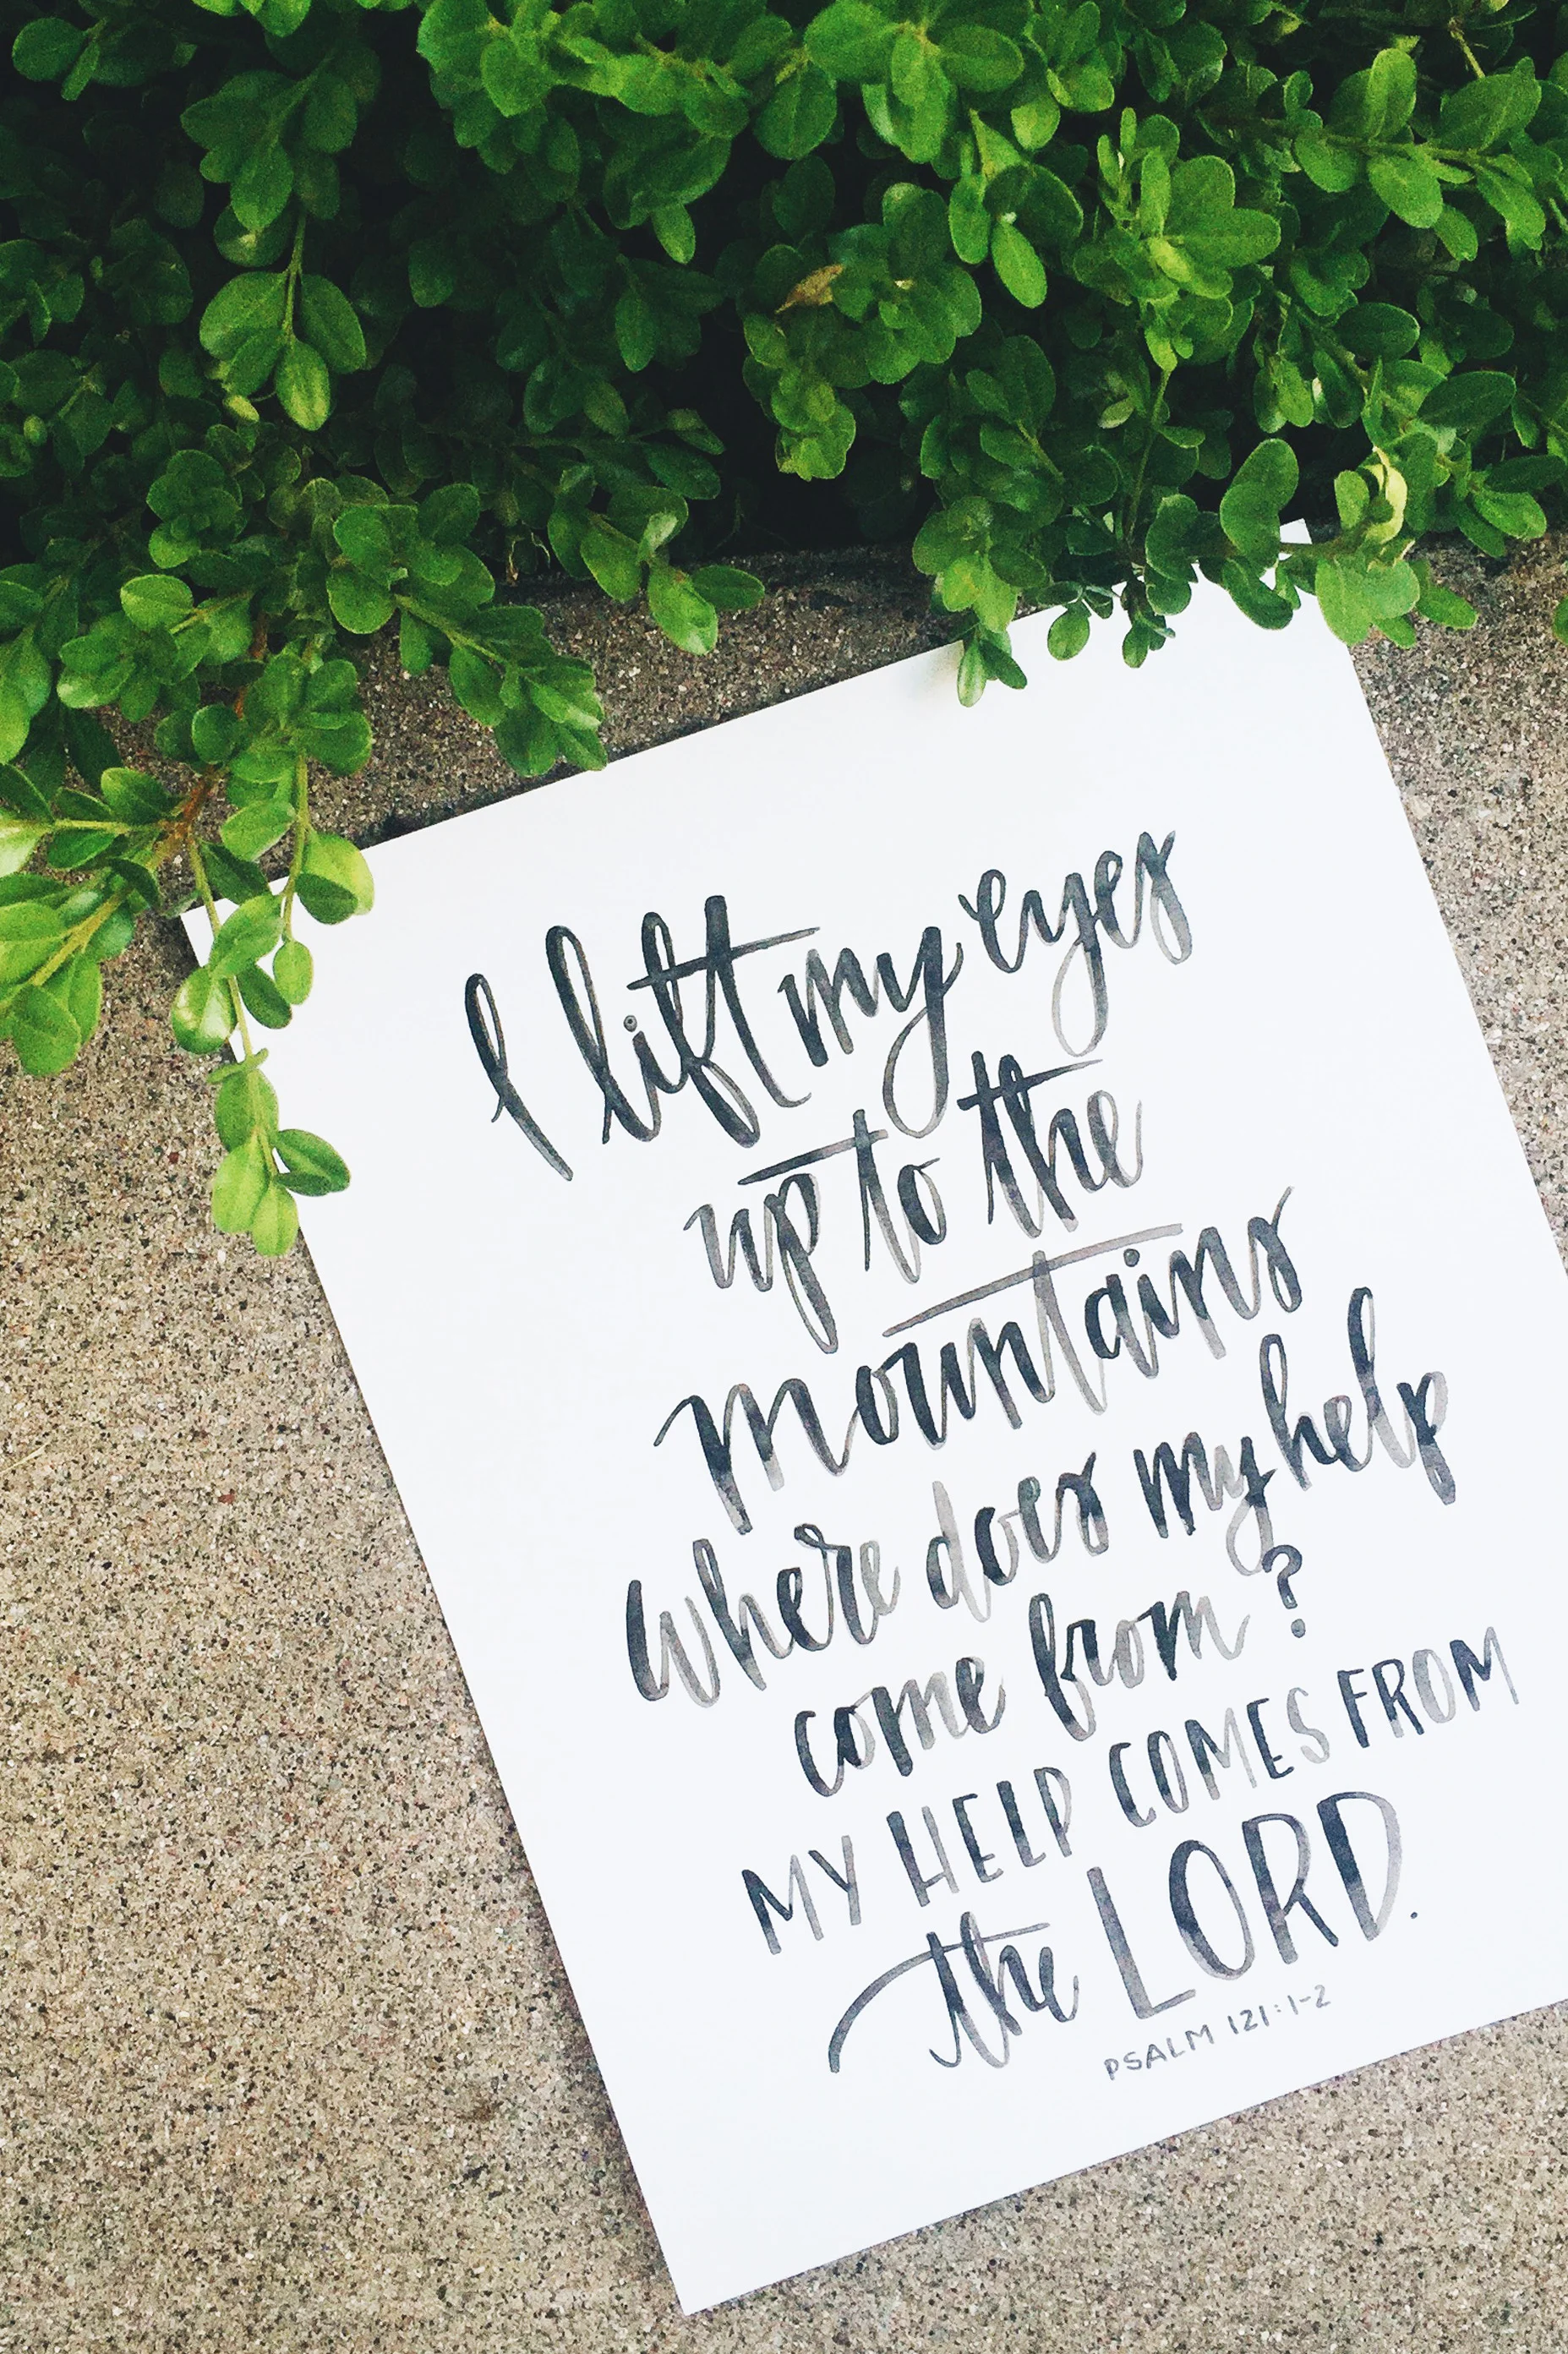 I lift my eyes
up to the
mountains
where does my help
come from?
MY HELP COMES FROM
the LORD.
PSALM 121:1-2